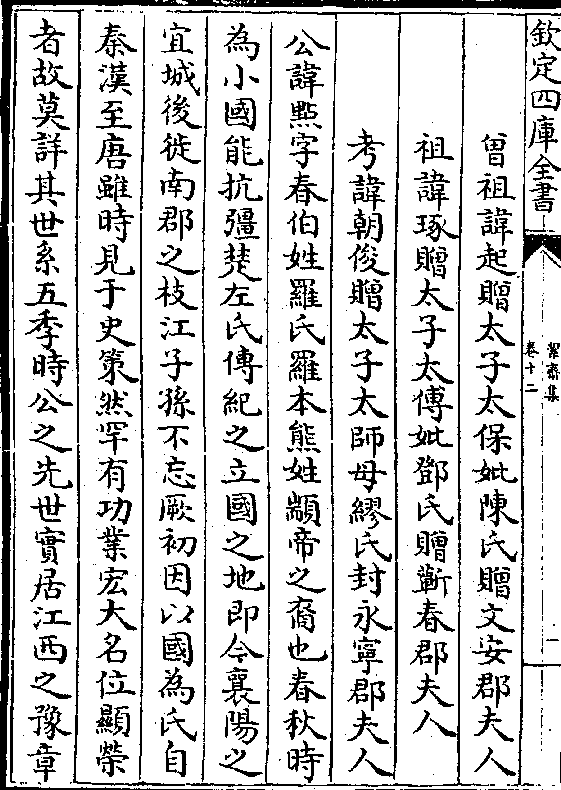 欽定四庫全書
絜齋集
卷十二
一
曾祖諱起贈太子太保妣陳氏贈文安郡夫人
祖諱琢贈太子太傅妣鄧氏贈蘄春郡夫人
考諱朝俊贈太子太師母繆氏封永寧郡夫人
公諱點字春伯姓羅氏羅本熊姓顓帝之裔也春秋時
為小國能抗彊楚左氏傳紀之立國之地即今襄陽之
宜城後徙南郡之枝江子孫不忘厥初因以國為氏自
秦漢至唐雖時見于史策然罕有功業宏大名位顯榮
者故莫詳其世系五季時公之先世實居江西之豫章